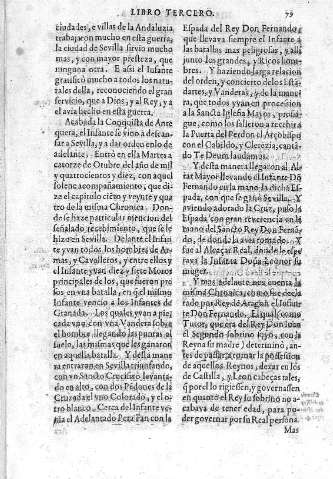 LIBRO TERCERO.
79
ciudades, e villas de la Andaluzia
trabajaron mucho en esta guerra,
la ciudad de Sevilla sirvio mucho
mas, y con mayor presteza, que
ninguna otra. E assi el Infante
gratificò mucho a todos los natu
rales della, reconociendo el gran
servicio, que a Dios, y al Rey, y a
el avia hecho en esta guerra.
Acabada la Conquista de Ante
quera, el Infante se vino a descan-
sar a Sevilla, y a dar orden en lo de
adelante. Entrò en ella Martes a
catorze de Otubre del año de mil
y quatrocientos y diez, con aquel
solene acompañamiento, que di-
ze el capitulo ciento y veynte y qua
tro de la misma Chronica. Don-
de se haze particular mencion del
señalado recebimiento, que se le
hizo en Sevilla. Delante el Infan
te yvan todos los hombres de Ar-
mas, y Cavalleros, y entre ellos y
el Infante yvan diez y siete Moros
principales de los, que fueron pre
sos en vna batalla, en que el mismo
Infante vencio a los Infantes de
Granada. Los quales yvan a pie,
cada vno con vna Vandera sobre
el hombro llegando las puntas al
suelo, las mismas que se ganaron
en aquella batalla. Y desta mana
ra entraron en Sevilla triunfando,
con vn Sancto Crucifixo levanta-
do en alto, con dos Pendones de la
Cruzada el vno Colorado, y el o-
tro blanco. Cerca del Infante ve-
nia el Adelantado Pera Fan con la
Espada del Rey Don Fernando,
que llevava siempre el Infante a
las batallas mas peligrosas, y alli
junto los grandes, y Ricos hom-
bres. Y haziendo larga relacion
del orden, y concierto de los Estan-
dartes, y Vanderas, y de la mane
ra, que todos yvan en procession
a la Sancta Iglesia Mayor, prosi-
gue, como los salieron a recebir a
la Puerta del Perdon el Arçobispo
con el Cabildo, y Clerezia, cantan-
do Te Deum laudamus.
Y desta manera llegaron al Al-
tar Mayor llevando el Infante Dō
Fernando en la mano la dicha Es-
pada, con que se ganò Sevilla. Y
aviendo adorado la Cruz, puso la
Espada con gran reverencia en la
mano del Sancto Rey Don Fernan-
do, de donde la avia tomado. Y
fue al Alcaçar Real, donde le espe
rava la Infanta Doña Leonor su
muger.
Y mas adelante nos cuenta la
misma Chronica, como fue decla
rado por Rey de Aragon el Infan-
te Don Fernando. El qual como
Tutor, que era del Rey Don Iuan
el Segundo su sobrino (que con la
Reyna su madre) determinò, an-
tes de passar a tomar la possession
de aquellos Reynos, dexar en los
de Castilla, y Leon cabeças tales,
que por el lo rigiessen, y governassen
en quanto el Rey su sobrino no a-
cabava de tener edad, para po-
der governar por su Real persona.
Mas